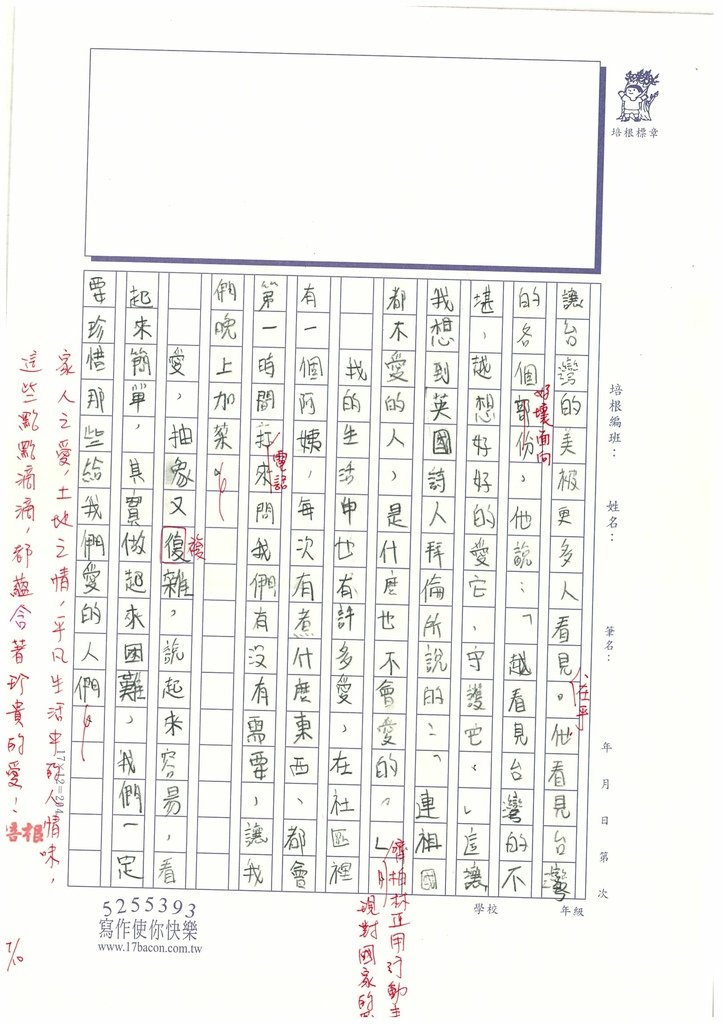 培根標章
培根編班：
姓名：
筆名：
年 月 日 第 次
年級
學校
讓台灣的美被更多人看見。他看見台灣
、在乎
的各個部份，他說：「越看見台灣的不
好壞面向
堪，越想好好的愛它、守護它、」這讓
我想到英國詩人拜倫所說的：「連祖國
都不愛的人，是什麼也不會愛的。」
齊柏林正用行動
現對國家的
我的生活中也有許多愛，在社區裡
有一個阿姨，每次有煮什麼東西，都會
第一時間打來問我們有沒有需要，讓我
電話
們晚上加菜。
愛，抽象又復雜，說起來容易，看
複
起來簡單，其實做起來困難，我們一定
要珍惜那些給我們愛的人們。
家人之愛，土地之情，平凡生活中的人情味，
這些點點滴滴，都蘊含著珍貴的愛！
培根
17×12=204
5255393
寫作使你快樂
www.17bacon.com.tw
7/10